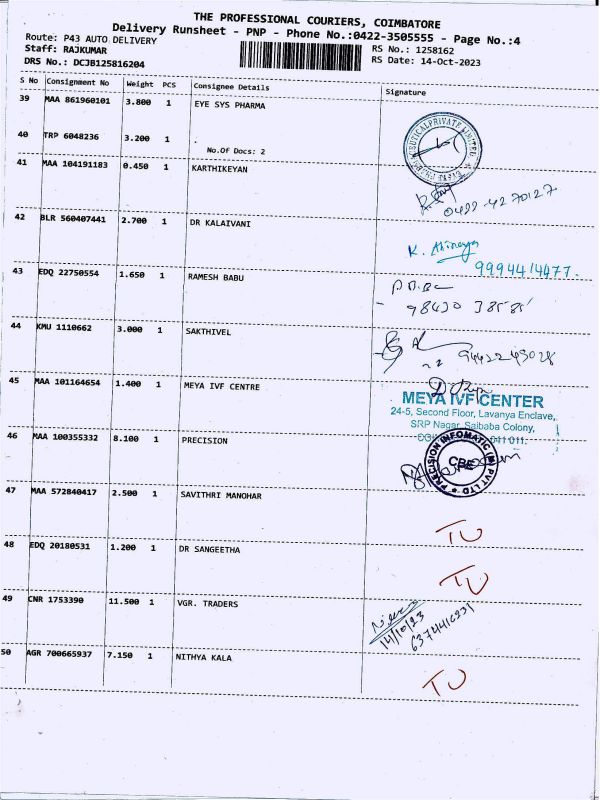 THE PROFESSIONAL COURIERS, COIMBATORE
Delivery Runsheet - PNP - Phone No.:0422-3505555 - Page No.:4
Route: P43 AUTO DELIVERY RS No.: 1258162
Staff: RAJKUMAR RS Date: 14-Oct-2023
DRS No.: DCJB125816204
S No Consignment No Weight PCS Consignee Details Signature
39 MAA 861960101 3.800 1 EYE SYS PHARMA
40 TRP 6048236 3.200 1 .
No.Of Docs: 2
41 MAA 104191183 0.450 1 KARTHIKEYAN
0422-4270127
42 BLR 560407441 2.700 1 DR KALAIVANI
K.
9994414477.
43 EDQ 22750554 1.650 1 RAMESH BABU
98430 38585
44 KMU 1110662 3.000 1 SAKTHIVEL
9442243028
45 MAA 101164654 1.400 1 MEYA IVF CENTRE
MEYA IVF CENTER
24-5, Second Floor, Lavanya Enclave,
SRP Nagar, Saibaba Colony,
641 011.
46 MAA 100355332 8.100 1 PRECISION
PRECISION INFOMATIC (M) PVT LTD
CBE
47 MAA 572840417 2.500 1 SAVITHRI MANOHAR
TU
48 EDQ 20180531 1.200 1 DR SANGEETHA
TU
49 CNR 1753390 11.500 1 VGR. TRADERS
14/10/23
6374416931
50 AGR 700665937 7.150 1 NITHYA KALA
TU